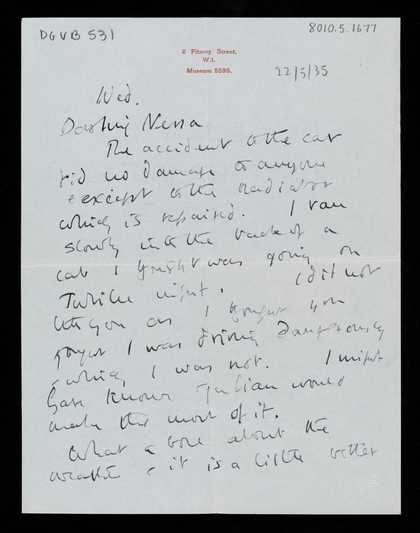 DGVB 531
8010.5.1677
8 Fitzroy Street,
W.1.
Museum
22/5/35
Wed.
Darling Nessa
The accident to the car
did no damage to anyone
except to the radiator
which is repaired. I ran
slowly into the back of a
car I thought was going on
night. I did not
as I thought you
thought I was driving dangerously
which I was not. I might
have known Julian would
make the most of it.
What a bore about the
it is a little better